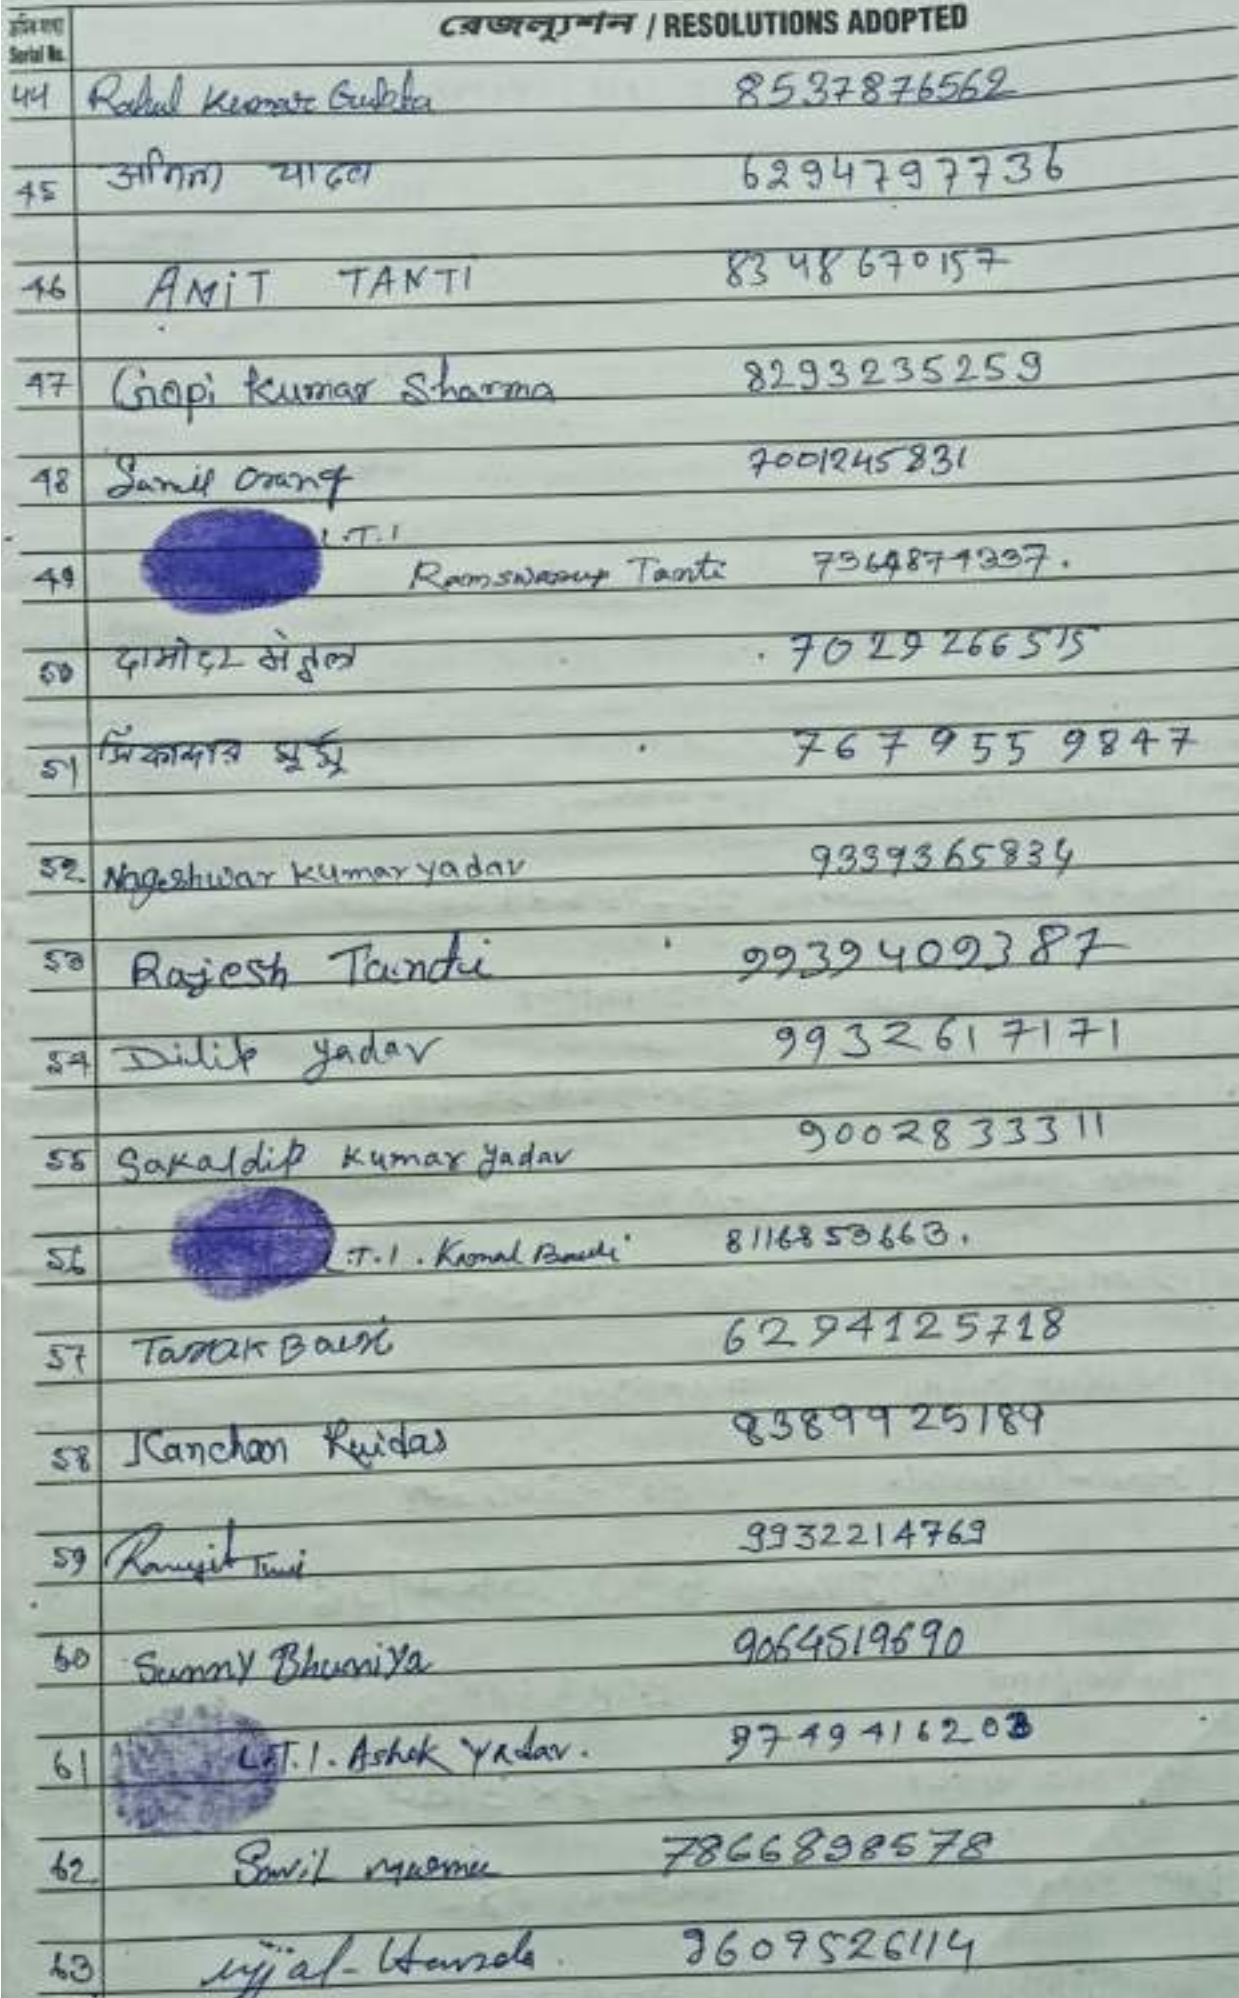 ক্রমিক সংখ্যা
Serial No.
রেজল্যুশন / RESOLUTIONS ADOPTED
44 Rahul Kumar Gupta 8537876562
45 यादव 6294797736
46 AMiT TANTI 8348670157
47 Gopi Kumar Sharma 8293235259
48 Orang 7001245831
L.T.I
49 Ramswarup Tanti 7364874337.
50 दामोदर 7029266515
51 মুর্মু 7679559847
52. Nageshwar Kumar yadav 9339365834
53 Rajesh Tandi 9939409387
54 Dilip yadav 9932617171
55 Sakaldip Kumar yadav 9002833311
56 L.T.I. Kamal Bauri 8116853663.
57 Tarak Bauri 6294125718
58 Kanchan Ruidas 8389925189
59 Ranujit 9932214769
60 Sunny Bhuniya 9064519690
61 L.T.I. Ashok Yadav. 9749416203
62. murmu 7866898578
63 ujjal-Hansda. 9609526114